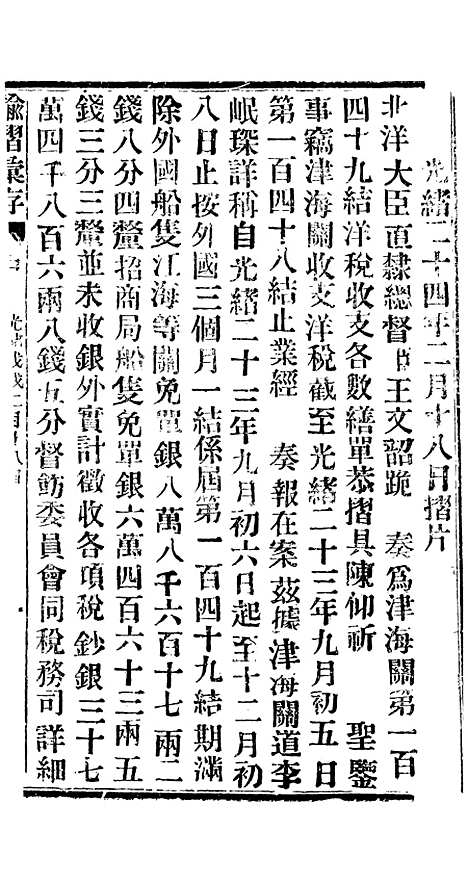 光緒二十四年二月十八日摺片
北洋大臣直隸總督臣王文韶跪 奏爲津海關第一百
四十九結洋稅收支各數繕單恭摺具陳仰祈 聖鑒
事竊津海關收支洋稅截至光緒二十三年九月初五日
第一百四十八結止業經 奏報在案茲據津海關道李
岷琛詳稱自光緒二十三年九月初六日起至十二月初
八日止按外國三個月一結係屆第一百四十九結期滿
除外國船隻江海等關免單銀八萬八千六百十七兩二
錢八分四釐招商局船隻免單銀六萬四百六十三兩五
錢三分三釐並未收銀外實計徵收各項稅鈔銀三十七
萬四千八百六兩八錢五分督飭委員會同稅務司詳細
諭摺彙存